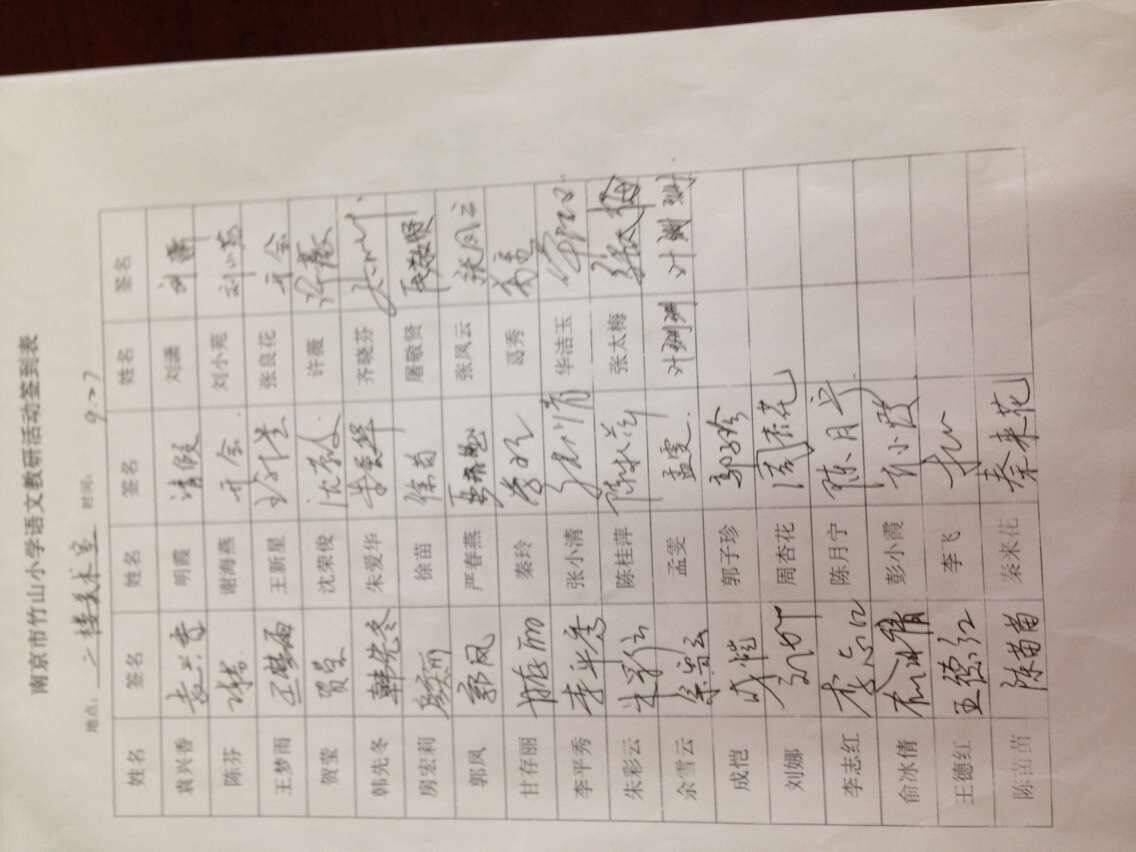 南京市竹山小学语文教研活动签到表
地点：二楼美术室 时间：9.27
姓名 签名 姓名 签名 姓名 签名
袁兴香 袁兴香 明霞 请假 刘潇 刘潇
陈芬 陈芬 谢海燕 开会 刘小苑 刘小苑
王梦雨 王梦雨 王新星 王新星 张良花 开会
贺莹 贺莹 沈荣俊 沈荣俊 许薇 许薇
韩先冬 韩先冬 朱爱华 朱爱华 齐晓芬
房宏莉 徐苗 徐苗 屠敬贤 屠敬贤
郭凤 郭凤 严春燕 严春燕 张凤云 张凤云
甘存丽 甘存丽 秦玲 秦玲 葛秀 葛秀
李平秀 李平秀 张小清 张小清 华洁玉
朱彩云 朱彩云 陈桂萍 陈桂萍 张太梅 张太梅
余雪云 余雪云 孟雯 孟雯 叶姗姗 叶姗姗
成恺 成恺 郭子珍 郭子珍
刘娜 刘娜 周杏花 周杏花
李志红 李志红 陈月宁 陈月宁
俞冰倩 俞冰倩 彭小霞 彭小霞
王德红 王德红 李飞
陈苗苗 陈苗苗 秦来花 秦来花